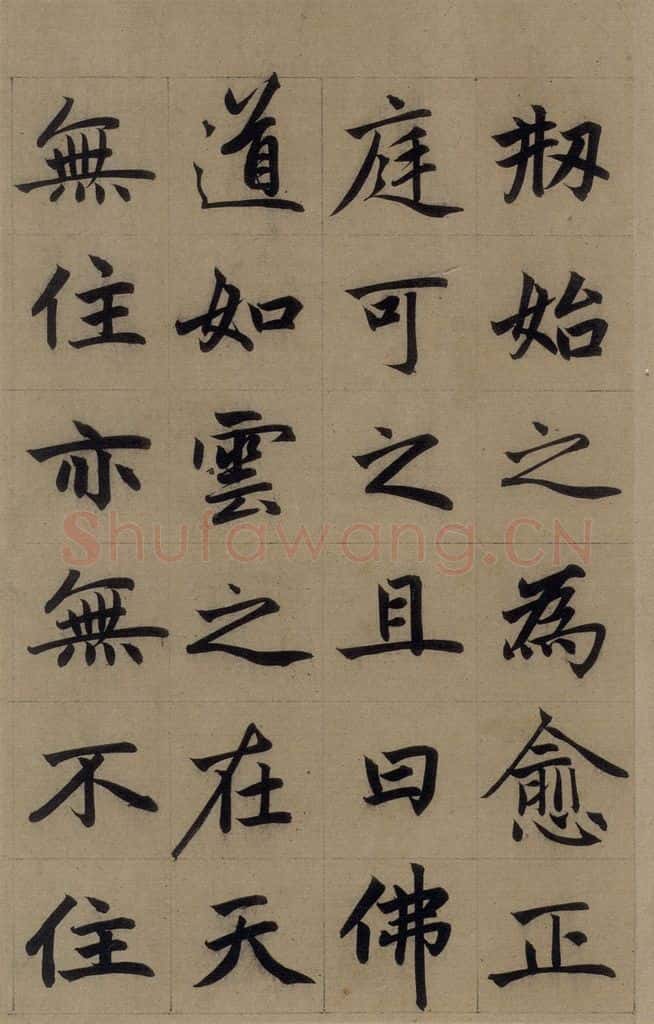 剏始之為愈正
庭可之且曰佛
道如雲之在天
無住亦無不住
Shufawang.CN